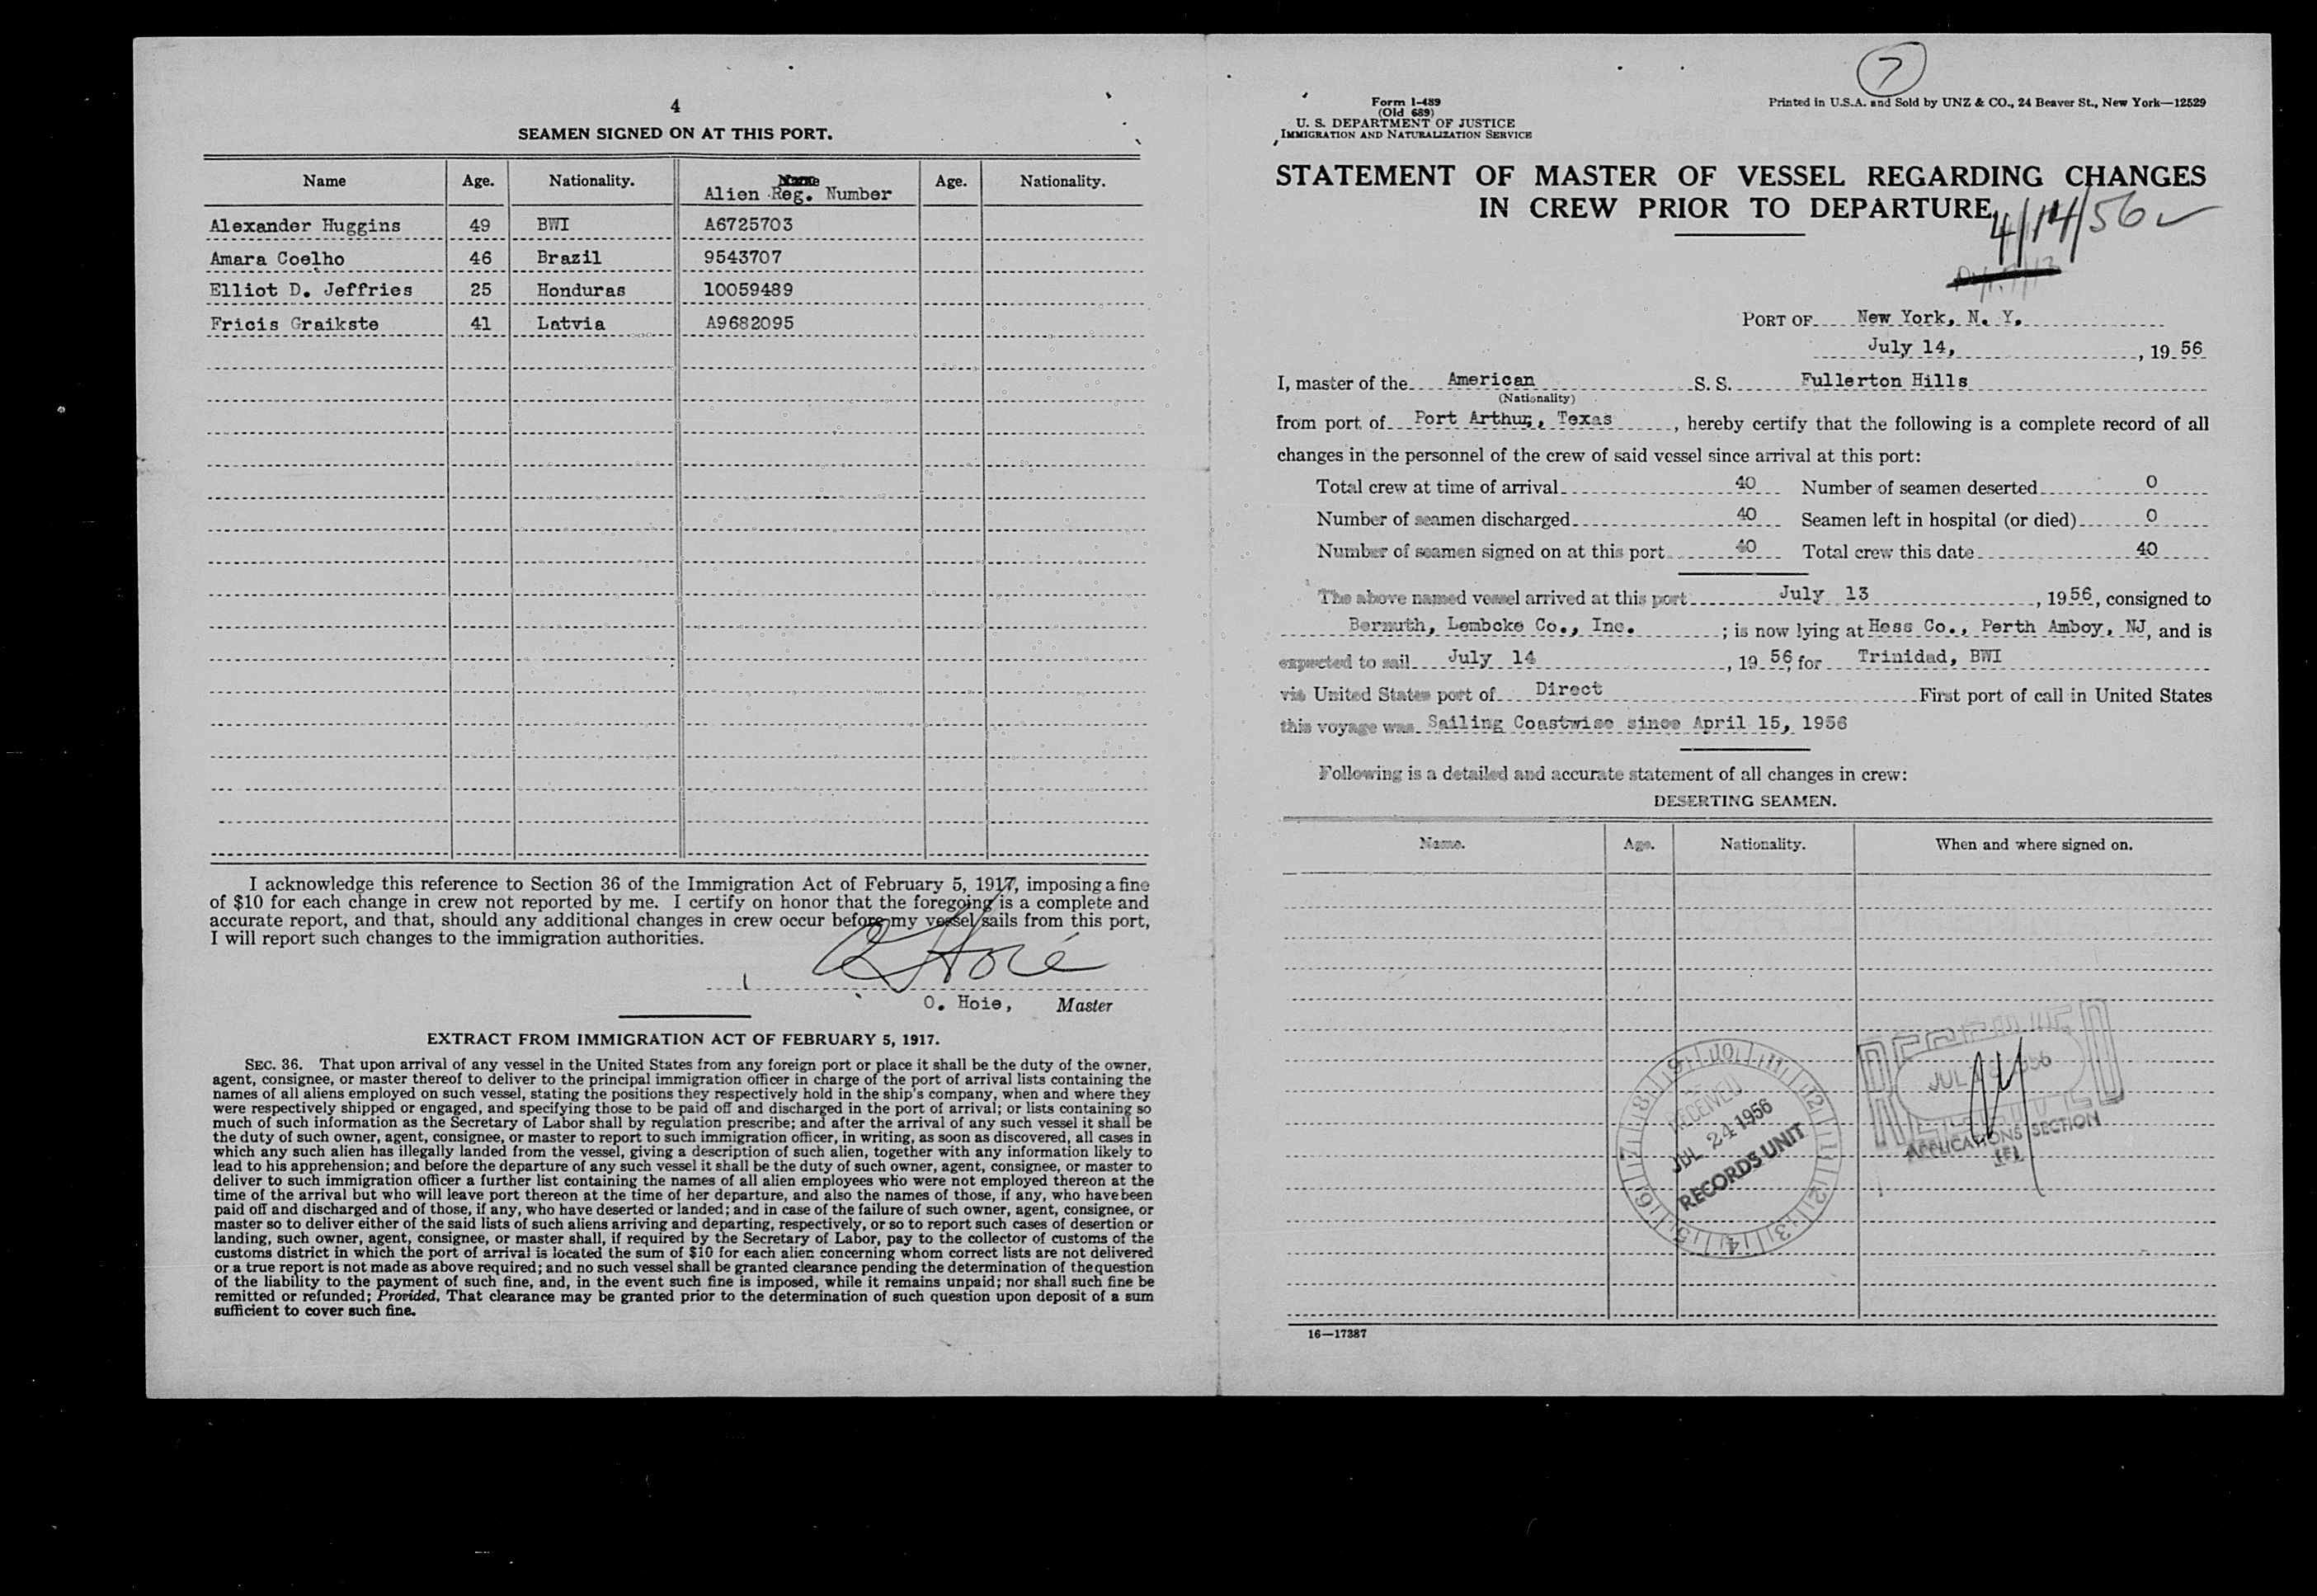 4
SEAMEN SIGNED ON AT THIS PORT.
Name Age. Nationality. Name Age. Nationality.
Alien Reg. Number
Alexander Huggins 49 BWI A6725703
Amara Coelho 46 Brazil 9543707
Elliot D. Jeffries 25 Honduras 10059489
Fricis Graikste 41 Latvia A9682095
I acknowledge this reference to Section 36 of the Immigration Act of February 5, 1917, imposing a fine
of $10 for each change in crew not reported by me. I certify on honor that the foregoing is a complete and
accurate report, and that, should any additional changes in crew occur before my vessel sails from this port,
I will report such changes to the immigration authorities.
O. Hoie, Master
EXTRACT FROM IMMIGRATION ACT OF FEBRUARY 5, 1917.
SEC. 36. That upon arrival of any vessel in the United States from any foreign port or place it shall be the duty of the owner,
agent, consignee, or master thereof to deliver to the principal immigration officer in charge of the port of arrival lists containing the
names of all aliens employed on such vessel, stating the positions they respectively hold in the ship's company, when and where they
were respectively shipped or engaged, and specifying those to be paid off and discharged in the port of arrival; or lists containing so
much of such information as the Secretary of Labor shall by regulation prescribe; and after the arrival of any such vessel it shall be
the duty of such owner, agent, consignee, or master to report to such immigration officer, in writing, as soon as discovered, all cases in
which any such alien has illegally landed from the vessel, giving a description of such alien, together with any information likely to
lead to his apprehension; and before the departure of any such vessel it shall be the duty of such owner, agent, consignee, or master to
deliver to such immigration officer a further list containing the names of all alien employees who were not employed thereon at the
time of the arrival but who will leave port thereon at the time of her departure, and also the names of those, if any, who have been
paid off and discharged and of those, if any, who have deserted or landed; and in case of the failure of such owner, agent, consignee, or
master so to deliver either of the said lists of such aliens arriving and departing, respectively, or so to report such cases of desertion or
landing, such owner, agent, consignee, or master shall, if required by the Secretary of Labor, pay to the collector of customs of the
customs district in which the port of arrival is located the sum of $10 for each alien concerning whom correct lists are not delivered
or a true report is not made as above required; and no such vessel shall be granted clearance pending the determination of the question
of the liability to the payment of such fine, and, in the event such fine is imposed, while it remains unpaid; nor shall such fine be
remitted or refunded; Provided, That clearance may be granted prior to the determination of such question upon deposit of a sum
sufficient to cover such fine.
7
Form I-489
(Old 689)
U. S. DEPARTMENT OF JUSTICE
IMMIGRATION AND NATURALIZATION SERVICE
Printed in U.S.A. and Sold by UNZ & CO., 24 Beaver St., New York—12529
STATEMENT OF MASTER OF VESSEL REGARDING CHANGES
IN CREW PRIOR TO DEPARTURE
4/14/56
PORT OF New York, N. Y.
July 14, , 19 56
I, master of the American S. S. Fullerton Hills
(Nationality)
from port of Port Arthur, Texas , hereby certify that the following is a complete record of all
changes in the personnel of the crew of said vessel since arrival at this port:
Total crew at time of arrival 40 Number of seamen deserted 0
Number of seamen discharged 40 Seamen left in hospital (or died) 0
Number of seamen signed on at this port 40 Total crew this date 40
The above named vessel arrived at this port July 13 , 1956, consigned to
Bermuth, Lembcke Co., Inc. ; is now lying at Hess Co., Perth Amboy, NJ, and is
expected to sail July 14 , 19 56, for Trinidad, BWI
via United States port of Direct First port of call in United States
this voyage was Sailing Coastwise since April 15, 1956
Following is a detailed and accurate statement of all changes in crew:
DESERTING SEAMEN.
Name. Age. Nationality. When and where signed on.
RECEIVED
JUL 24 1956
RECORDS UNIT
9 10 11 12 1 2 3 4 5 6 7 8
RECEIVED
JUL 1956
APPLICATIONS SECTION
16—17387